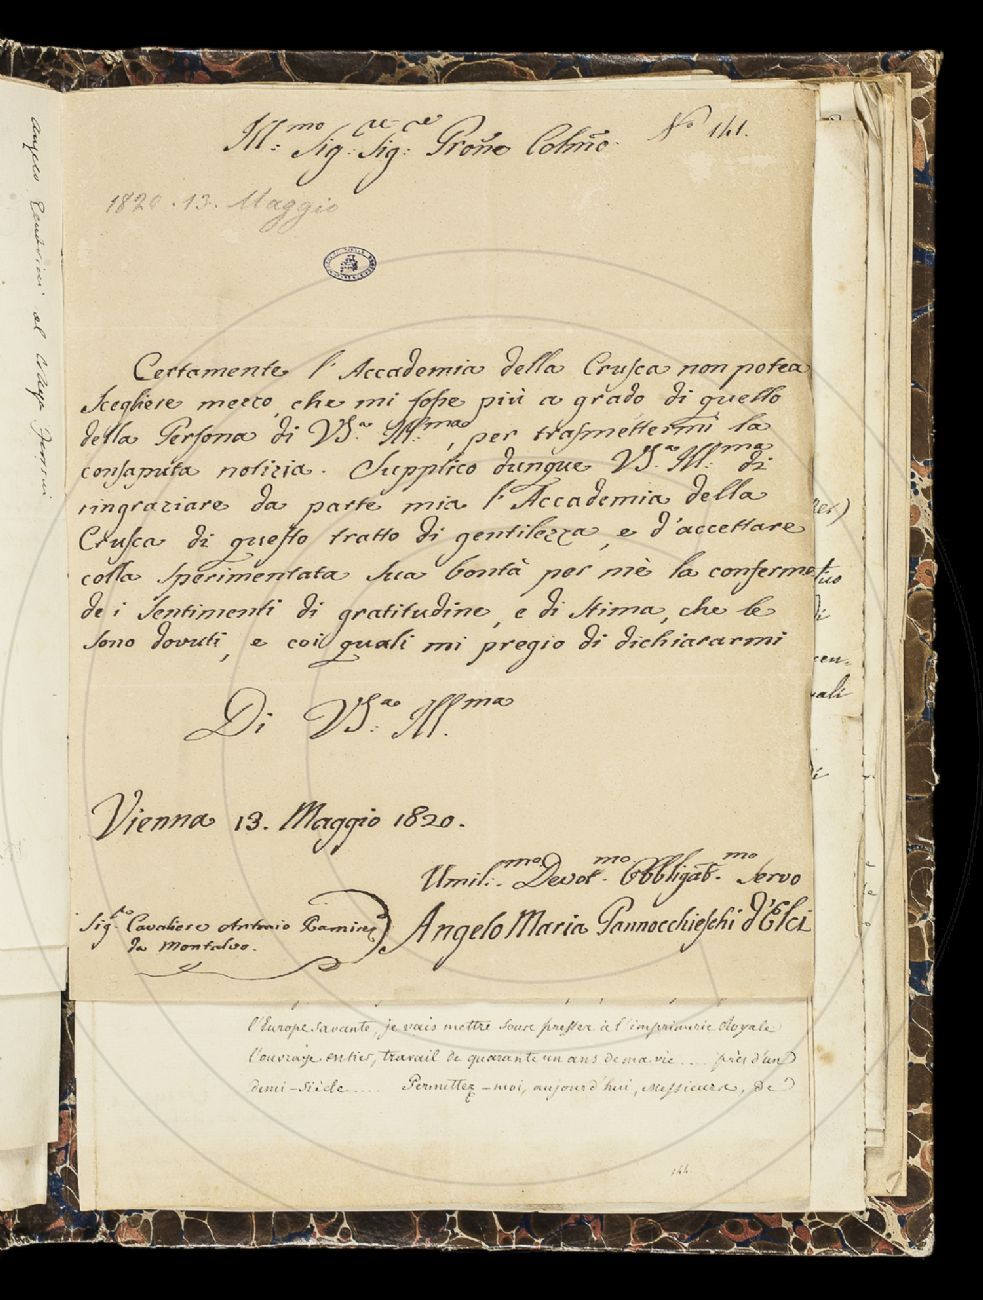 Ill:mo Sig:re Sig:re Prone Colmo. No 141.
1820. 13. Maggio
Certamente l'Accademia della Crusca non potea
scegliere mezzo, che mi fosse più a grado di quello
della Persona di VS.a Ill:ma, per trasmettermi la
consaputa notizia. Supplico dunque VS.a Ill:ma di
ringraziare da parte mia l'Accademia della
Crusca di questo tratto di gentilezza, e d'accettare
colla sperimentata sua bontà per mè la conferma
de i sentimenti di gratitudine, e di stima, che le
sono dovuti, e coi quali mi pregio di dichiararmi
Di VS:a Ill.ma
Vienna 13. Maggio 1820.
Umil:mo Devot.mo Obbligat.mo Servo
Angelo Maria Pannocchieschi d'Elci
Sig.r Cavaliere Antonio Ramirez
da Montalvo.
l'Europe savante, je vais mettre sous presse à l'imprimerie Royale
l'ouvrage entier, travail de quarante un ans de ma vie .... près d'un
demi-siècle .... Permettez-moi, aujourd'hui, Messieurs, de
144.